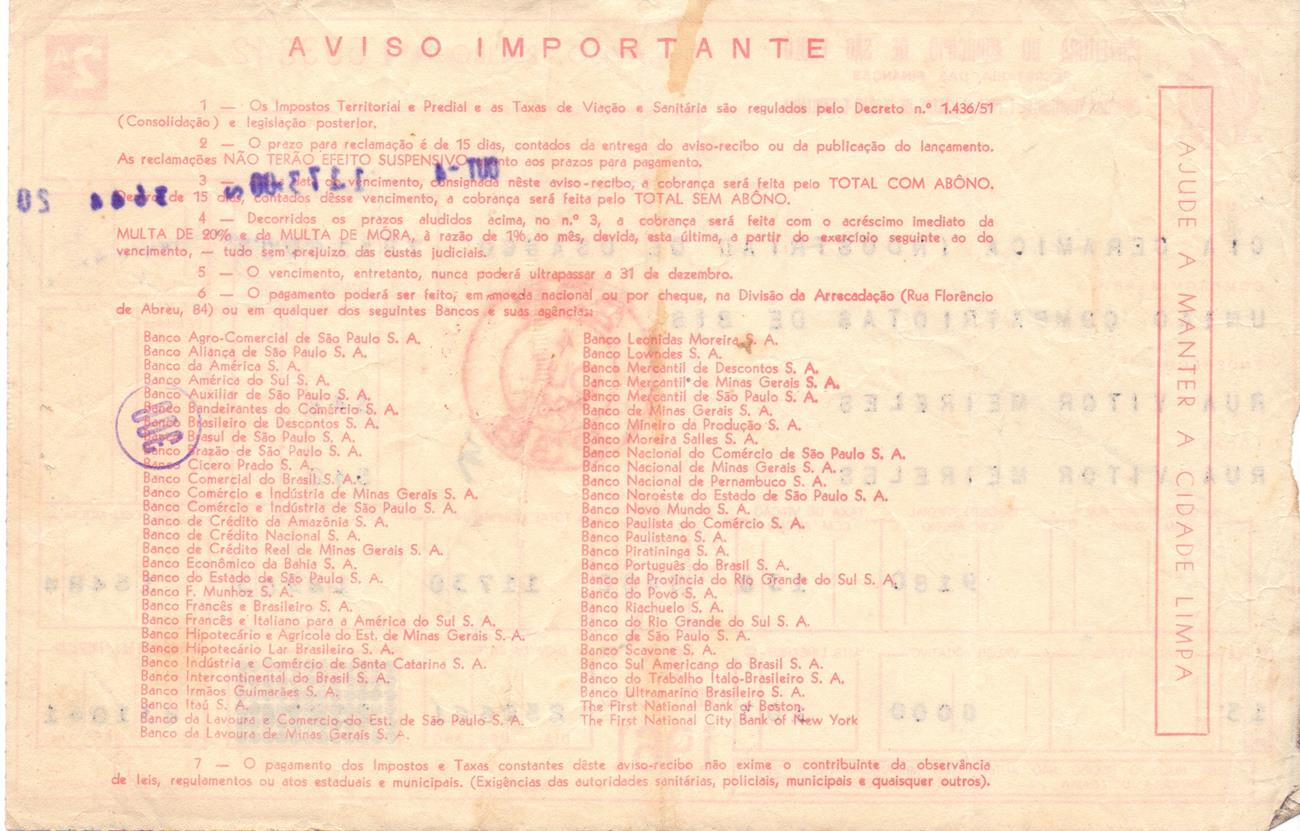 AVISO IMPORTANTE
1 — Os Impostos Territorial e Predial e as Taxas de Viação e Sanitária são regulados pelo Decreto n.º 1.436/51
(Consolidação) e legislação posterior.
2 — O prazo para reclamação é de 15 dias, contados da entrega do aviso-recibo ou da publicação do lançamento.
As reclamações NÃO TERÃO EFEITO SUSPENSIVO quanto aos prazos para pagamento.
3 — data do vencimento, consignada nêste aviso-recibo, a cobrança será feita pelo TOTAL COM ABÔNO.
Dentro de 15 dias, contados dêsse vencimento, a cobrança será feita pelo TOTAL SEM ABÔNO.
4 — Decorridos os prazos aludidos acima, no n.º 3, a cobrança será feita com o acréscimo imediato da
MULTA DE 20% e da MULTA DE MÓRA, à razão de 1% ao mês, devida, esta última, a partir do exercício seguinte ao do
vencimento, — tudo sem prejuizo das custas judiciais.
5 — O vencimento, entretanto, nunca poderá ultrapassar a 31 de dezembro.
6 — O pagamento poderá ser feito, em moeda nacional ou por cheque, na Divisão da Arrecadação (Rua Florêncio
de Abreu, 84) ou em qualquer dos seguintes Bancos e suas agências:
Banco Agro-Comercial de São Paulo S. A.
Banco Aliança de São Paulo S. A.
Banco da América S. A.
Banco América do Sul S. A.
Banco Auxiliar de São Paulo S. A.
Banco Bandeirantes do Comércio S. A.
Banco Brasileiro de Descontos S. A.
Banco Brasul de São Paulo S. A.
Banco Brazão de São Paulo S. A.
Banco Cicero Prado S. A.
Banco Comercial do Brasil S. A.
Banco Comércio e Indústria de Minas Gerais S. A.
Banco Comércio e Indústria de São Paulo S. A.
Banco de Crédito da Amazônia S. A.
Banco de Crédito Nacional S. A.
Banco de Crédito Real de Minas Gerais S. A.
Banco Econômico da Bahia S. A.
Banco do Estado de São Paulo S. A.
Banco F. Munhoz S. A.
Banco Francês e Brasileiro S. A.
Banco Francês e Italiano para a América do Sul S. A.
Banco Hipotecário e Agricola do Est. de Minas Gerais S. A.
Banco Hipotecário Lar Brasileiro S. A.
Banco Indústria e Comércio de Santa Catarina S. A.
Banco Intercontinental do Brasil S. A.
Banco Irmãos Guimarães S. A.
Banco Itaú S. A.
Banco da Lavoura e Comercio do Est. de São Paulo S. A.
Banco da Lavoura de Minas Gerais S. A.
Banco Leonidas Moreira S. A.
Banco Lowndes S. A.
Banco Mercantil de Descontos S. A.
Banco Mercantil de Minas Gerais S. A.
Banco Mercantil de São Paulo S. A.
Banco de Minas Gerais S. A.
Banco Mineiro da Produção S. A.
Banco Moreira Salles S. A.
Banco Nacional do Comércio de São Paulo S. A.
Banco Nacional de Minas Gerais S. A.
Banco Nacional de Pernambuco S. A.
Banco Noroéste do Estado de São Paulo S. A.
Banco Novo Mundo S. A.
Banco Paulista do Comércio S. A.
Banco Paulistano S. A.
Banco Piratininga S. A.
Banco Português do Brasil S. A.
Banco da Provincia do Rio Grande do Sul S. A.
Banco do Povo S. A.
Banco Riachuelo S. A.
Banco do Rio Grande do Sul S. A.
Banco de São Paulo S. A.
Banco Scavone S. A.
Banco Sul Americano do Brasil S. A.
Banco do Trabalho Italo-Brasileiro S. A.
Banco Ultramarino Brasileiro S. A.
The First National Bank of Boston.
The First National City Bank of New York
7 — O pagamento dos Impostos e Taxas constantes dêste aviso-recibo não exime o contribuinte da observância
de leis, regulamentos ou atos estaduais e municipais. (Exigências das autoridades sanitárias, policiais, municipais e quaisquer outros).
AJUDE A MANTER A CIDADE LIMPA